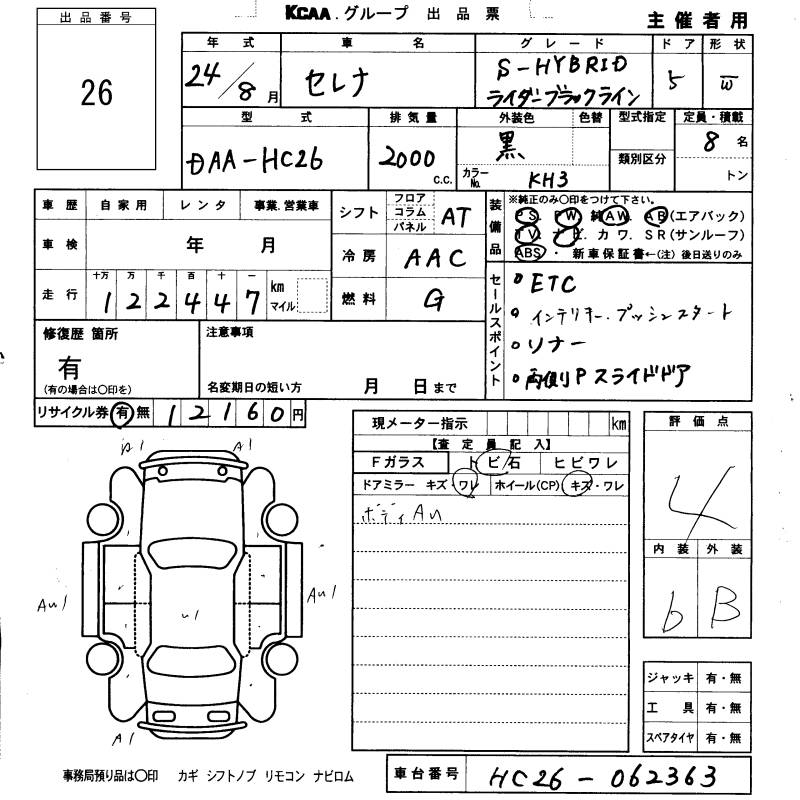 KCAA.グループ 出品票
主催者用
出品番号
26
年式 車名 グレード ドア 形状
24/8月 セレナ S-HYBRID 5 W
ライダーブラックライン
型式 排気量 外装色 色替 型式指定 定員・積載
DAA-HC26 2000 c.c. 黒 8名
カラーNo. KH3 類別区分 トン
車歴 自家用 レンタ 事業.営業車
シフト フロア コラム パネル AT
装備品 ※純正のみ○印をつけて下さい。
PS. PW 純AW. AB(エアバック)
TV. ナビ. カワ. SR(サンルーフ)
ABS・ 新車保証書←(注) 後日送りのみ
車検 年 月
冷房 AAC
走行 十万 万 千 百 十 一
122447 km マイル
燃料 G
セールスポイント
ETC
インテリキー.プッシュスタート
ソナー
両側Pスライドドア
修復歴 箇所
有
(有の場合は○印を)
注意事項
名変期日の短い方 月 日まで
リサイクル券 有 無 12160円
現メーター指示 km
【査定員記入】
Fガラス トビ石 ヒビワレ
ドアミラー キズ・ワレ ホイール(CP) キズ・ワレ
ボディAU
評価点
4
内装 外装
b B
A1 A1
AU1 U1 AU1
A1
ジャッキ 有・無
工具 有・無
スペアタイヤ 有・無
事務局預り品は○印 カギ シフトノブ リモコン ナビロム
車台番号 HC26-062363